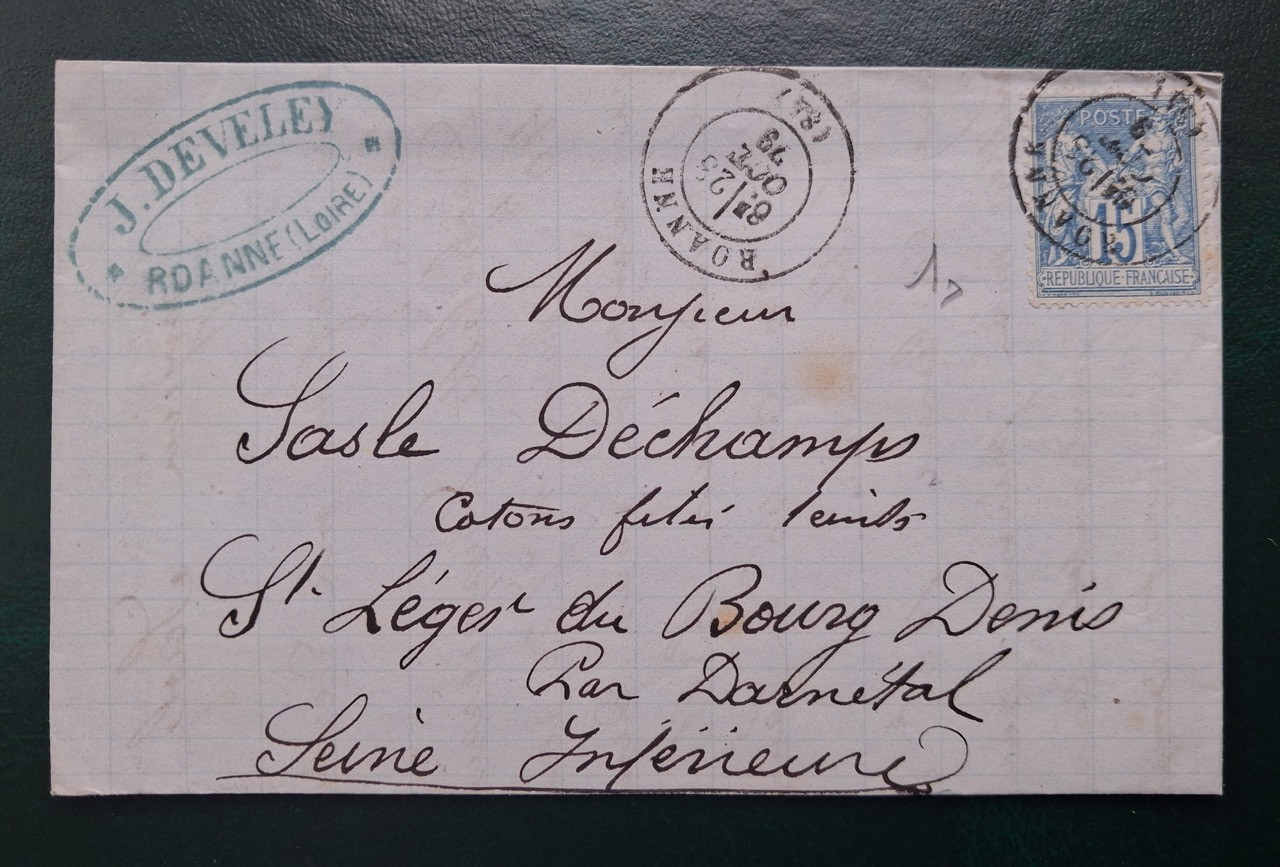 J. DEVELEY
ROANNE (LOIRE)
ROANNE
(84)
6E/25
OCT
79
POSTE
15
REPUBLIQUE FRANÇAISE
Monsieur
Sasle Déchamps
Cotons filés teints
St. Léger du Bourg Denis
Par Darnétal
Seine Inférieure